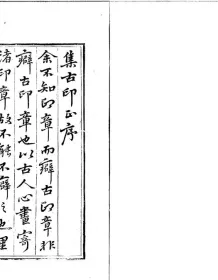 集古印正序
余不知印章而癖古印章非
癖古印章也以古人心畫寄
諸印章故不能不癖之也